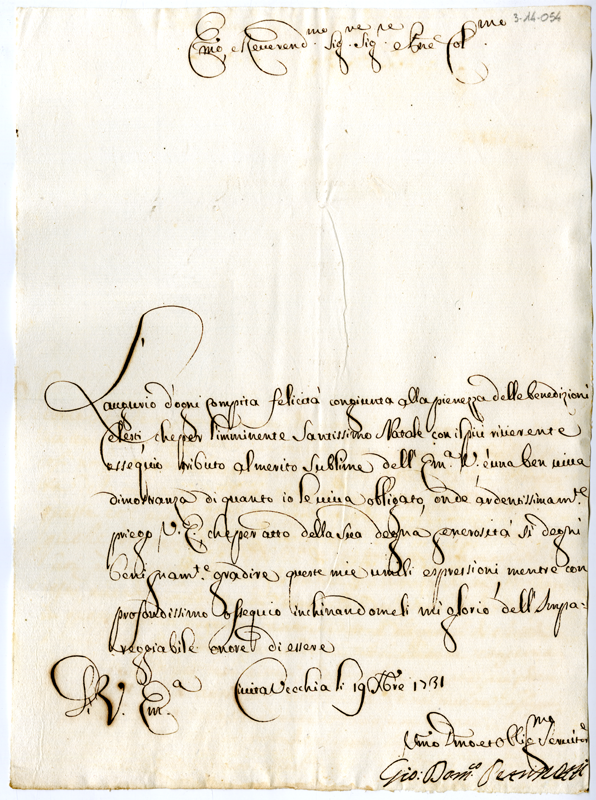 3-14-054
Emo, e Reverend.mo Sig.re Sig.re e Pne Col.mo
L'augurio d'ogni compita felicità congiunta alla pienezza delle benedizioni
celesti, che per l'imminente Santissimo Natale con il più riverente
ossequio tributo al merito sublime dell'Em.a V. è una ben viva
dimostranza di quanto io le viva obligato, onde ardentissimam.te
priego V. E. che per atto della sua degna generosità si degni
benignam.te gradire queste mie umili espressioni mentre con
profondissimo ossequio inchinandomeli mi glorio dell'Impa-
reggiabile onore di essere
Di V. Em.a Civita Vecchia li 19 Xbre 1731
Umo Dmo et Obligmo Servitore
Gio: Dom.co